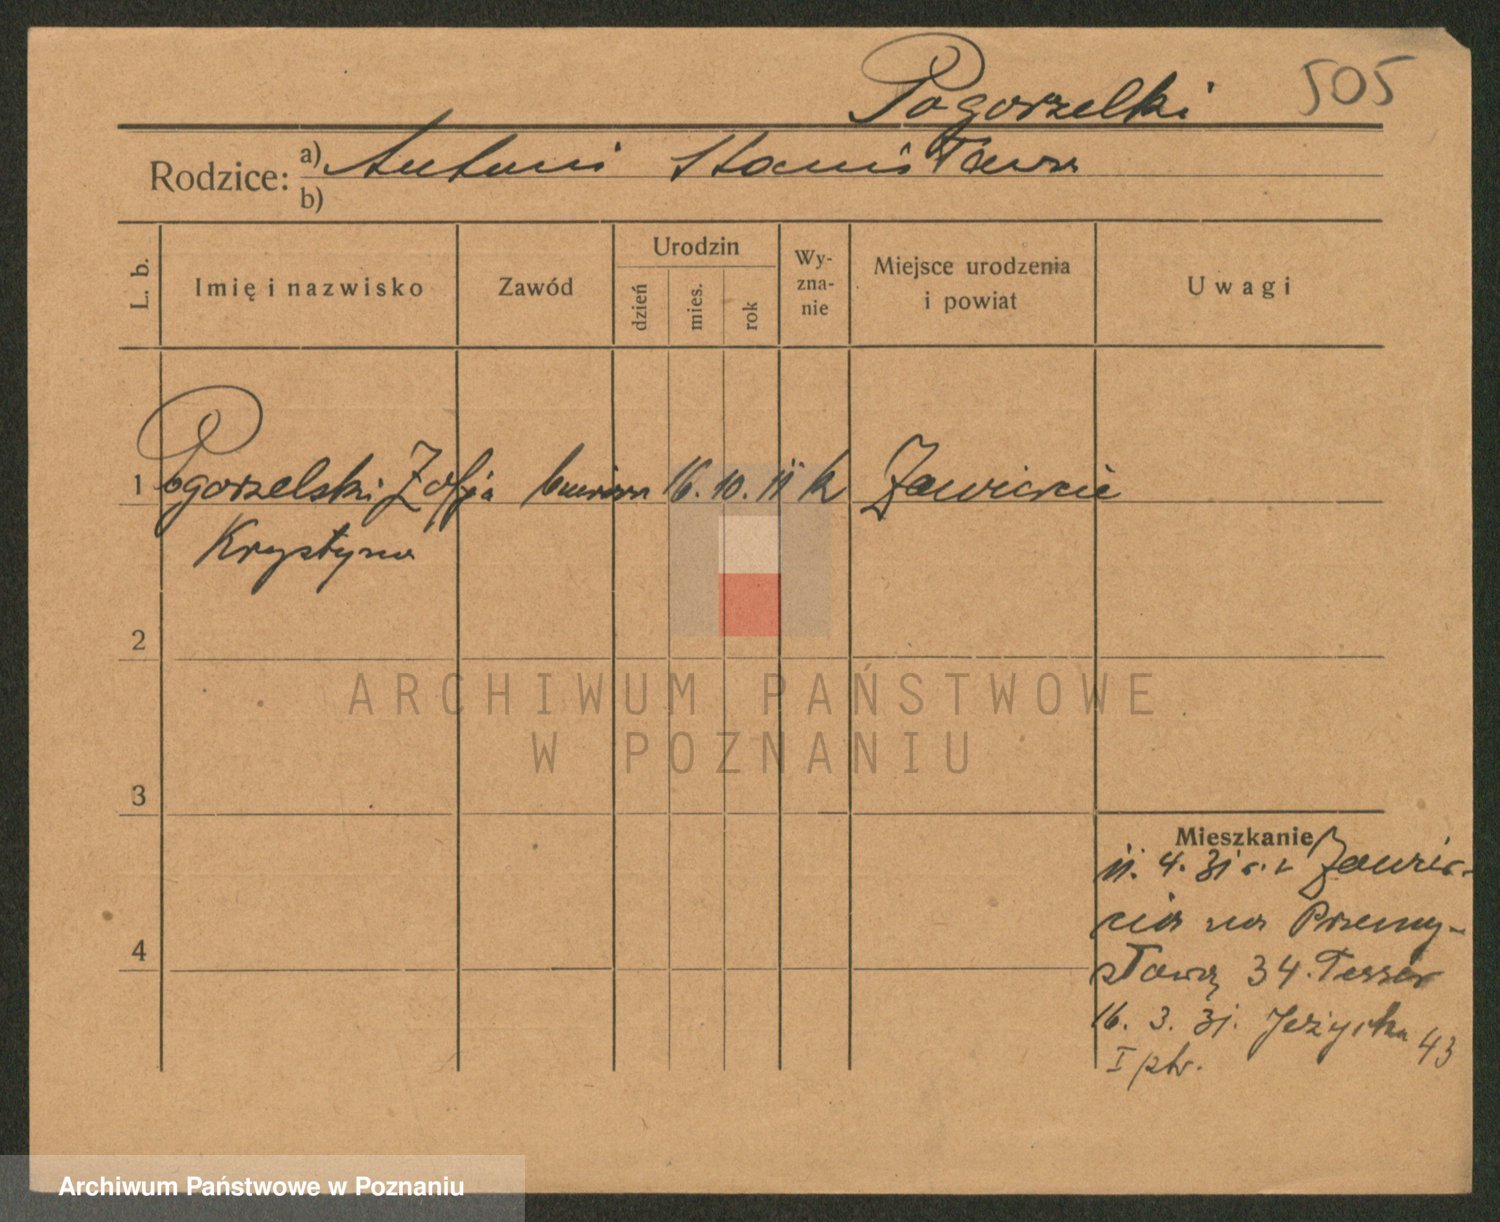 505
Pogorzelski
Rodzice: a) Antoni Stanisława
b)
L. b. Imię i nazwisko Zawód Urodzin dzień mies. rok Wyznanie Miejsce urodzenia i powiat Uwagi
1 Pogorzelski Zofja 16. 10. 11 k Zawiercie
Krystyna
2
3
4
Mieszkanie
11. 4. 31 r. z Zawier-
cia na Przemy-
sławą 34. Tesser
16. 3. 31. Jeżycka 43
I ptr.
ARCHIWUM PAŃSTWOWE
W POZNANIU
Archiwum Państwowe w Poznaniu